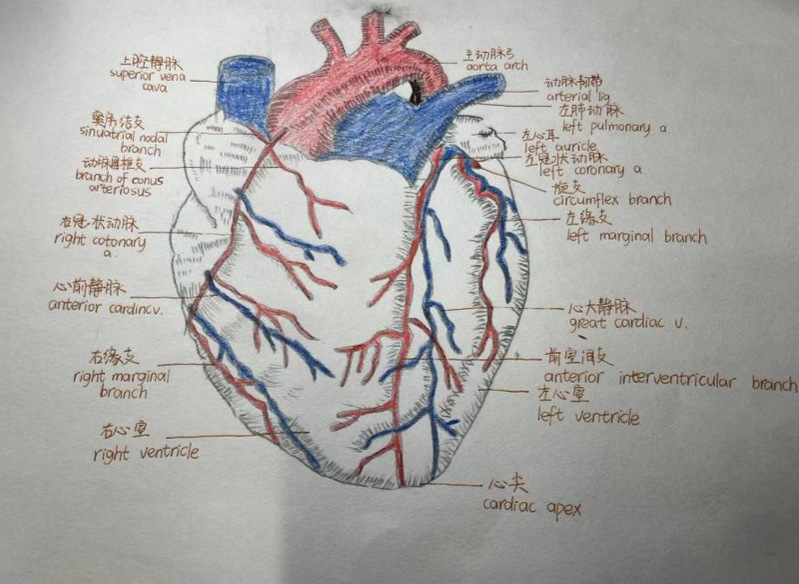 上腔静脉
superior vena
cava
窦房结支
sinuatrial nodal
branch
动脉圆锥支
branch of conus
arteriosus
右冠状动脉
right cotonary
a.
心前静脉
anterior cardincv.
右缘支
right marginal
branch
右心室
right ventricle
主动脉弓
aorta arch
动脉韧带
arterial lig
左肺动脉
left pulmonary a.
左心耳
left auricle
左冠状动脉
left coronary a.
旋支
circumflex branch
左缘支
left marginal branch
心大静脉
great cardiac v.
前室间支
anterior interventricular branch
左心室
left ventricle
心尖
cardiac apex